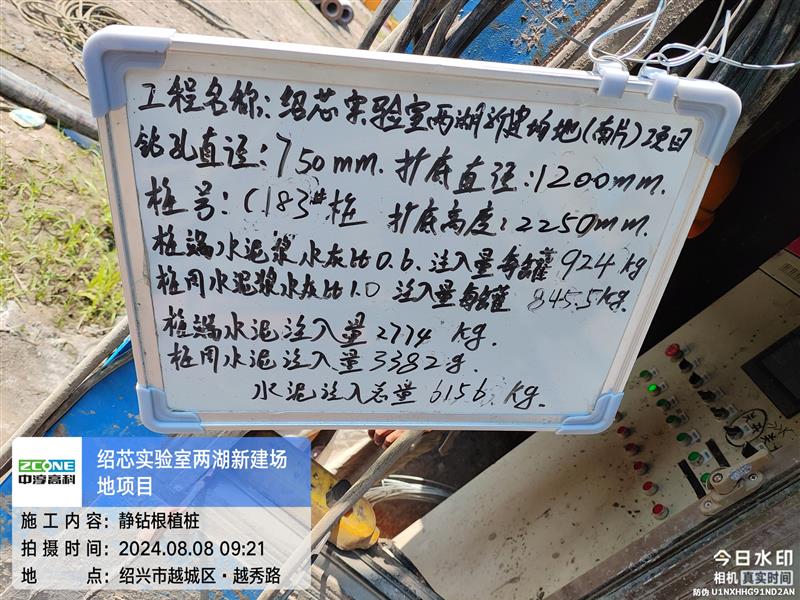 工程名称:绍芯实验室两湖新建场地(南片)项目
钻孔直径:750mm.扩底直径:1200mm.
桩号:C183#桩 扩底高度:2250mm.
桩端水泥浆水灰比0.6.注入量每罐924kg
桩周水泥浆水灰比1.0 注入量每罐845.5kg.
桩端水泥注入量2774 kg.
桩周水泥注入量3382g.
水泥注入总量6156 kg.
ZCONE
中淳高科
绍芯实验室两湖新建场
地项目
施工内容:静钻根植桩
拍摄时间:2024.08.08 09:21
地点:绍兴市越城区·越秀路
今日水印
相机 真实时间
防伪 U1NXHHG91ND2AN